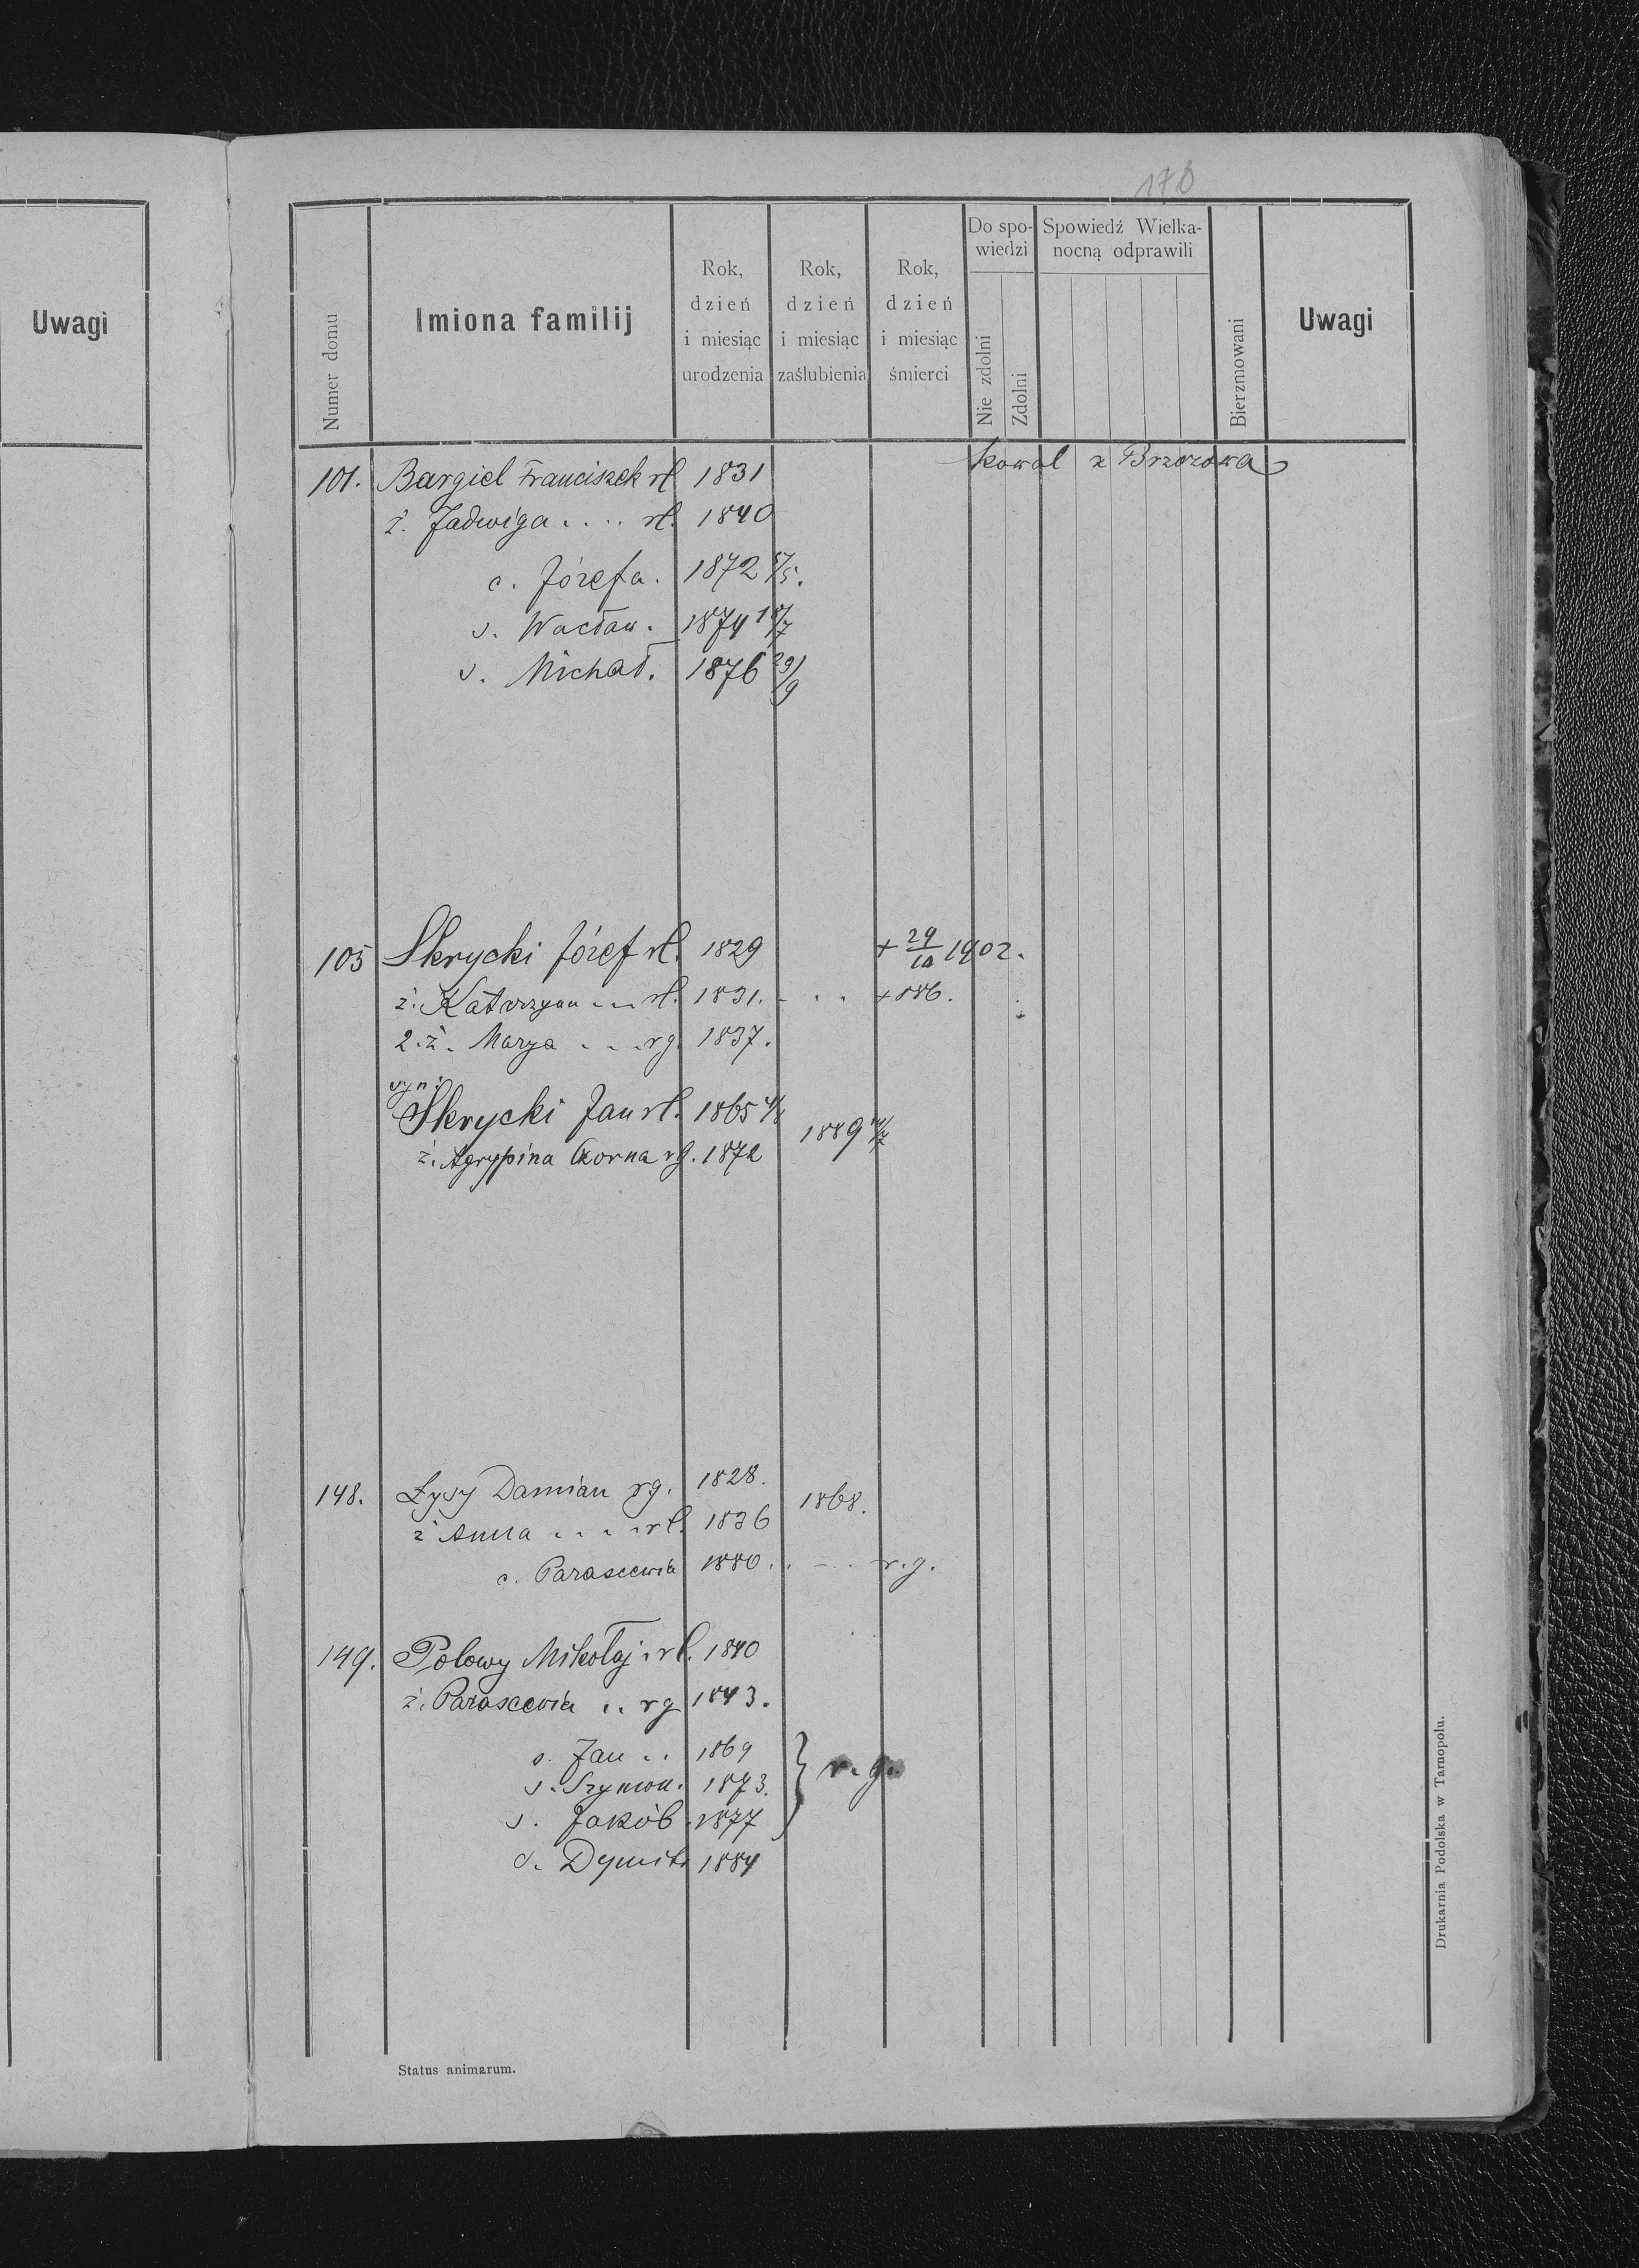 170
Uwagi
Numer domu
Imiona familij
Rok, dzień i miesiąc urodzenia
Rok, dzień i miesiąc zaślubienia
Rok, dzień i miesiąc śmierci
Do spo-
wiedzi
Nie zdolni
Zdolni
Spowiedź Wielka-
nocną odprawili
Bierzmowani
Uwagi
101. Bargiel Franciszek rł 1831 kowal z Brzozowa
ż. Jadwiga . . . . rł. 1840
c. Józefa. 1872
s. Wacław. 1874
s. Michał. 1876 29/9
105 Skrycki Józef rł. 1829 + 29/10 1902.
ż. Katarzyna . . . rł. 1831. - . . + 886.
2. ż. Marya . . . rg. 1837.
syn:
Skrycki Jan rł. 1865 1889
ż. Agrypina rg. 1872
148. Łysy Damian rg. 1828. 1868.
ż Anna . . . . rł. 1836
c. Parascewia 1880. . - . . r. g.
149. Polowy Mikołaj . rł. 1840
ż. Parascewia . . rg 1843.
s. Jan . . 1869
s. Szymon. 1873. } r. g.
s. Jakób 1877
s. Dymitr 1884
Status animarum.
Drukarnia Podolska w Tarnopolu.